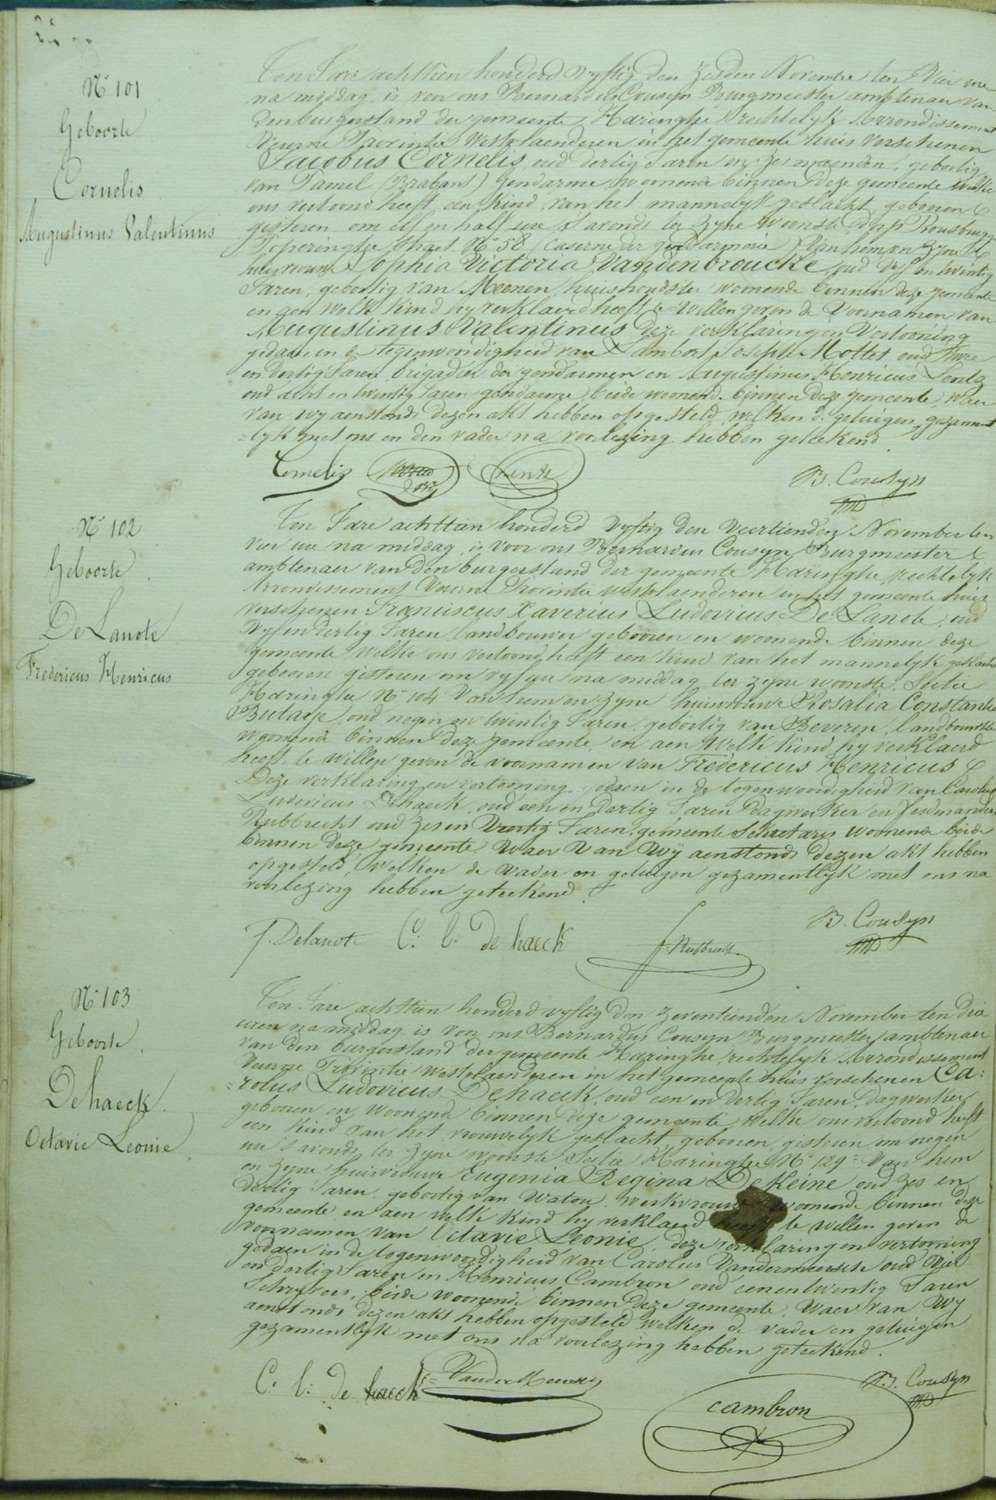 N° 101
Geboorte
Cornelis
Augustinus Valentinus
Ten Jare achttien honderd vyftig den zesden November ten vier ure
na middag is voor ons Bernardus Cousyn Burgmeester ambtenaer van
den burgerstand der gemeente Haringhe Rechtelyk Arrondissement
Veurne Provintie Westvlaenderen in het gemeente huis verschenen
Jacobus Cornelis oud dertig Jaren zes maenden, geboortig
van Hamel (Brabant) Gendarme woonende binnen deze gemeente welke
ons vertoond heeft een kind van het mannelyk geslacht geboren
gisteren om elf en half ure s'avonds ter zyne woonste dorp Rousbrugge
Poperinghe Straet N° 58 (Caserne der Gendarmerie) van hem en zyne
huisvrouw Sophia Victoria Vandenbroucke oud vyf en twintig
Jaren, geboortig van Meenen, huishoudster woonende binnen deze gemeente
en aen welk kind hy verklaerd heeft te willen geven de voornamen van
Augustinus Valentinus deze verklaring en vertooning
gedaen in de tegenwoordigheid van Lambert Joseph Mottet oud twee
en dertig Jaren brigadier der gendarmen en Augustinus Henricus Lentz
oud acht en twintig Jaren gendarme beide woonende binnen deze gemeente, waer
van wy aenstonds dezen akt hebben opgesteld welken de getuigen gezament
=lyk met ons en den vader na voorlezing hebben geteekend
Cornelis
B. Cousyn
N° 102
Geboorte
De Lanote
Fredericus Henricus
Ten Jare achttien honderd vyftig den veertienden November ten
vier ure na middag is voor ons Bernardus Cousyn Burgmeester
ambtenaer van den burgerstand der gemeente Haringhe rechtelyk
Arrondissement Veurne Provintie Westvlaenderen in het gemeente huis
verschenen Franciscus Xaverius Ludovicus De Lanote, oud
vyf en dertig Jaren landbouwer geboren en woonende binnen deze
gemeente welke ons vertoond heeft een kind van het mannelyk geslacht
geboren gisteren om vyf ure na middag ter zyne woonste Sectie
Haringhe N° 104 van hem en zyne huisvrouw Rosalia Constantia
Butaeye oud negen en twintig Jaren, geboortig van Beveren, landbouwster
woonende binnen deze gemeente, en aen welk kind hy verklaerd
heeft te willen geven de voornamen van Fredericus Henricus
Deze verklaring en vertooning gedaen in de tegenwoordigheid van Carolus
Ludovicus Dehaeck, oud een en dertig Jaren Dagwerker en Ferdinandus
Rubbrecht oud zes en veertig Jaren, gemeente Secretaris woonende beide
binnen deze gemeente waer van wy aenstonds dezen akt hebben
opgesteld, welken de vader en getuigen gezamentlyk met ons na
voorlezing hebben geteekend.
f. Delanote C: l: de haeck f. Rubbrecht
B. Cousyn
N° 103
Geboorte
Dehaeck
Octavie Leonie
Ten Jare achttien honderd vyftig den zeventienden November ten drie
uren na middag is voor ons Bernardus Cousyn Burgmeester ambtenaer
van den burgerstand der gemeente Haringhe rechtelyk Arrondissement
Veurne Provintie Westvlaenderen in het gemeente huis verschenen Ca=
=rolus Ludovicus Dehaeck, oud een en dertig Jaren, Dagwerker
geboren en woonende binnen deze gemeente welke ons vertoond heeft
een kind van het vrouwelyk geslacht, geboren gisteren om negen
ure s'avonds ter zyne woonste Sectie Haringhe N° 129 van hem
en zyne huisvrouw Eugenia Regina Dekeine oud zes en
dertig Jaren geboortig van Watou, werkvrouw woonende binnen deze
gemeente en aen welk kind hy verklaerd heeft te willen geven de
voornamen van Octavie Leonie. deze verklaring en vertooning
gedaen in de tegenwoordigheid van Carolus Vandermeersch oud vier
en dertig Jaren en Henricus Cambron oud een en twintig Jaren
Schryvers, beide woonende binnen deze gemeente, waer van wy
aenstonds dezen akt hebben opgesteld welken de vader en getuigen
gezamentlyk met ons na voorlezing hebben geteekend.
C: l: de haeck
B. Cousyn
cambron